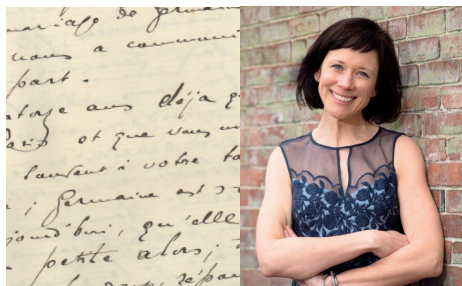 mariage de Germaine
nous a communi
part.
atorze ans déjà q
Paris et que vous
sautent à votre
; Germaine est
jourd'hui, qu'elle
petite alors;